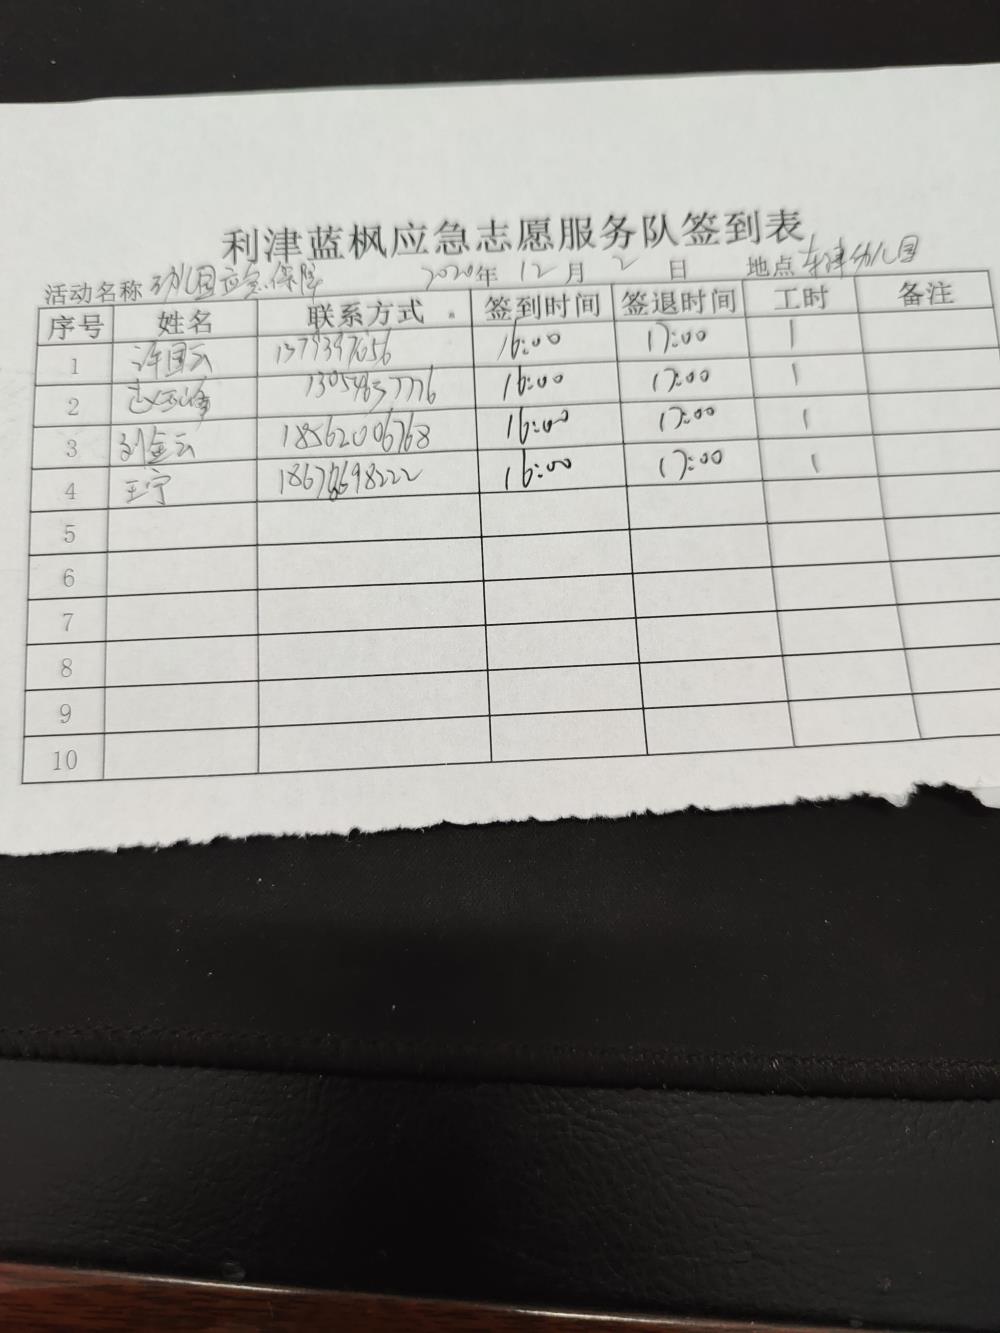 利津蓝枫应急志愿服务队签到表
活动名称 幼儿园应急保障 2020年 12月 2日 地点 东津幼儿园
序号 姓名 联系方式 签到时间 签退时间 工时 备注
1 许国云 16:00 17:00 1
2 16:00 17:00 1
3 刘金云 18562006768 16:00 17:00 1
4 王宁 16:00 17:00 1
5
6
7
8
9
10